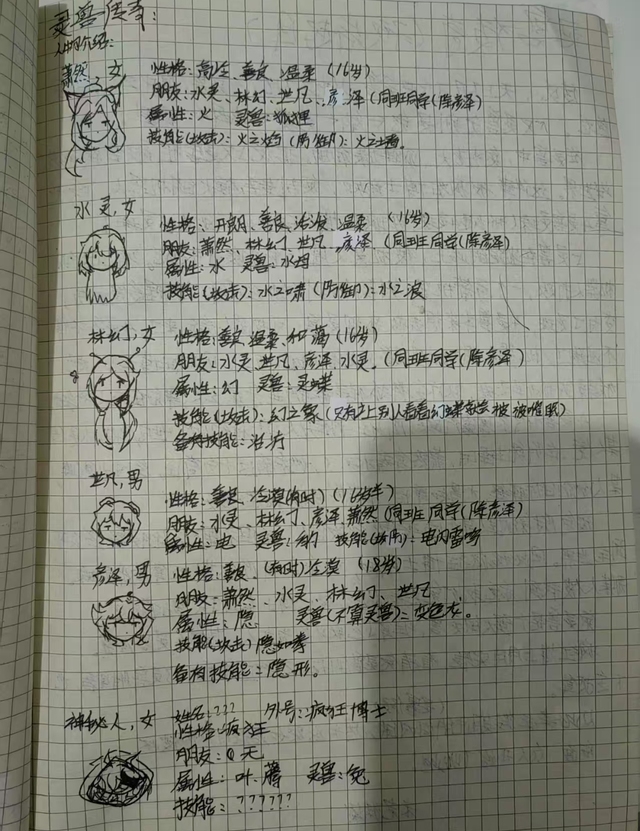 灵兽传奇:
人物介绍:
萧然,女
性格:高冷、善良、温柔(16岁)
朋友:水灵、林幻、世凡、彦泽(同班同学(陈彦泽)
属性:火 灵兽:狐狸
技能(攻击):火之焰(防御):火之墙。
水灵,女
性格:开朗、善良、活泼、温柔(16岁)
朋友:萧然、林幻、世凡、彦泽(同班同学(陈彦泽)
属性:水 灵兽:水母
技能(攻击):水之啸(防御):水之浪
林幻,女
性格:善良、温柔、和蔼(16岁)
朋友:水灵、世凡、彦泽、水灵。(同班同学(陈彦泽)
属性:幻 灵兽:灵蝶
技能(攻击):幻之家(只有让别人看看幻蝶就会被被催眠)
备有技能:治疗
世凡,男
性格:善良、冷漠(有时)(16岁半)
朋友:水灵、林幻、彦泽、萧然(同班同学(陈彦泽)
属性:电 灵兽: 技能(攻击):电闪雷鸣
彦泽,男
性格:善良、(有时)冷漠(18岁)
朋友:萧然、水灵、林幻、世凡
属性:隐 灵兽(不算灵兽):变色龙。
技能(攻击)隐如拳
备有技能:隐形。
神秘人,女
姓名:??? 外号:疯狂博士
性格:疯狂
朋友:0无
属性:叶、藤 灵兽:兔
技能:??????